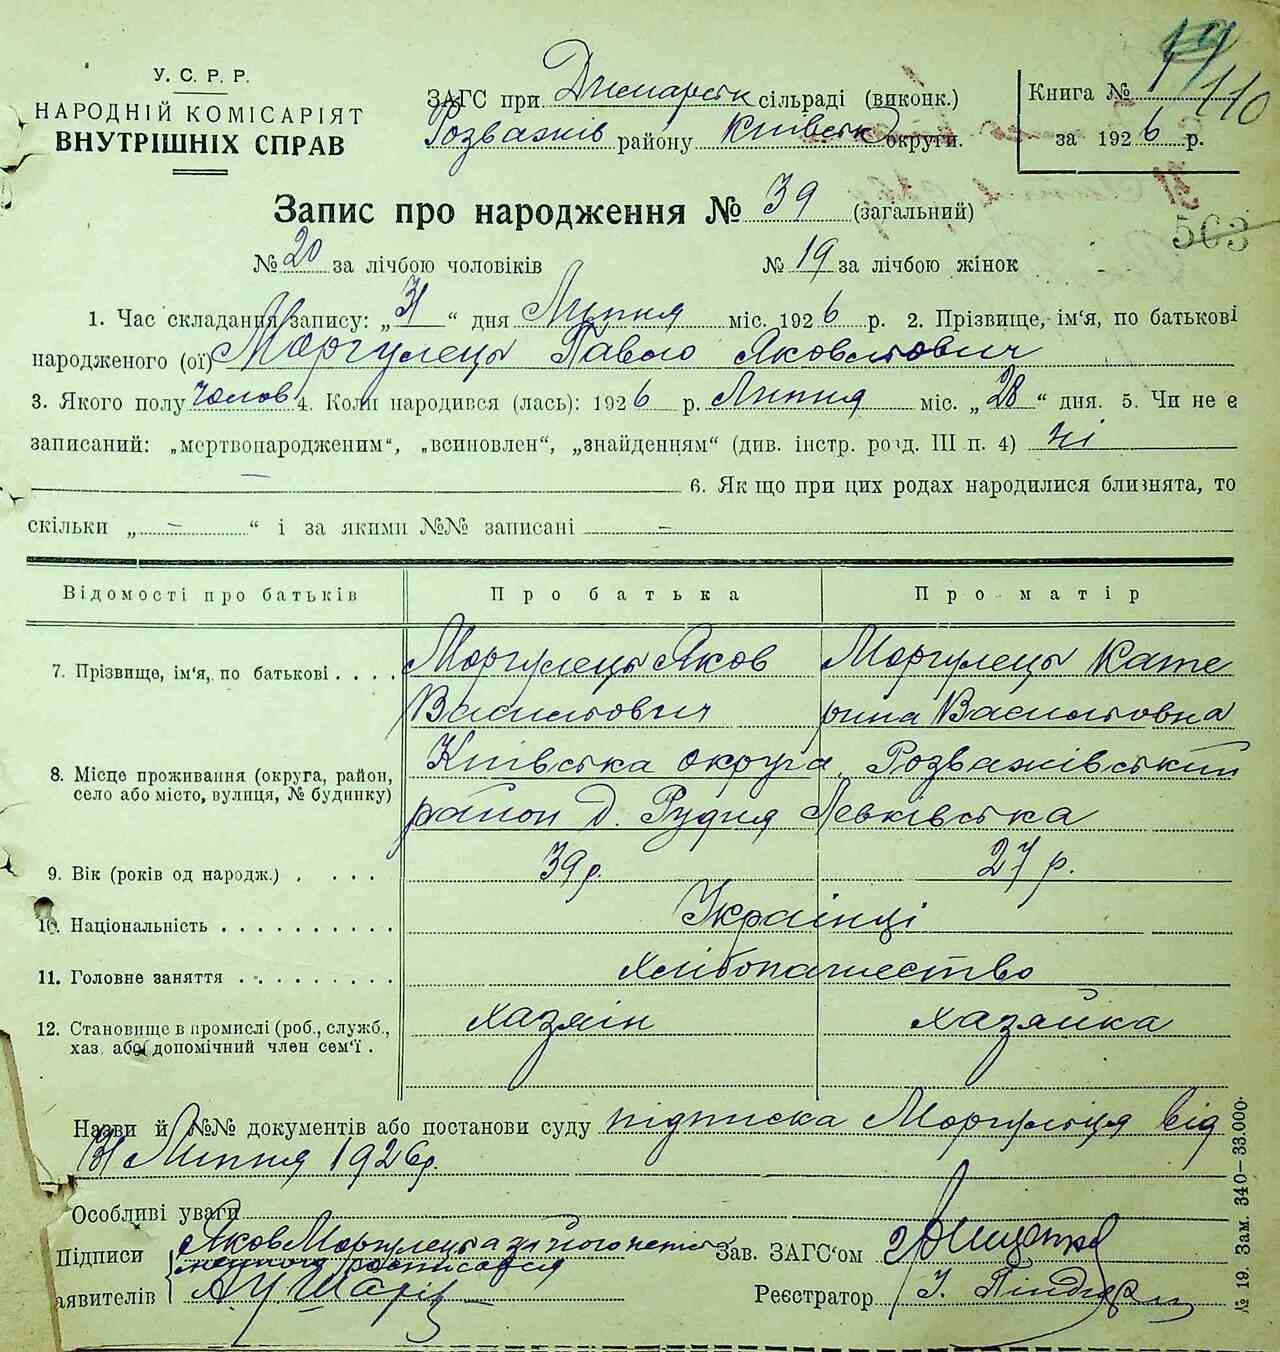 У. С. Р. Р.
НАРОДНІЙ КОМІСАРІЯТ
ВНУТРІШНІХ СПРАВ
ЗАГС при Димарськ сільраді (виконк.)
Розважів району Київськ округи.
Книга №
110
за 1926 р.
Запис про народження № 39 (загальний)
563
№ 20 за лічбою чоловіків № 19 за лічбою жінок
1. Час складання запису: „31“ дня Липня міс. 1926 р. 2. Прізвище, ім'я, по батькові
народженого (ої) Моргулець Павло Яковльович
3. Якого полу чолов 4. Коли народився (лась): 1926 р. Липня міс. „28“ дня. 5. Чи не є
записаний: „мертвонародженим“, „всиновлен“, „знайденням“ (див. інстр. розд. III п. 4) ні
6. Як що при цих родах народилися близнята, то
скільки „ – “ і за якими №№ записані –
Відомості про батьків Про батька Про матір
7. Прізвище, ім'я, по батькові . . . . Моргулець Яков Моргулець Кате
Васильович рина Васильовна
8. Місце проживання (округа, район, Київська округа, Розважівський
село або місто, вулиця, № будинку) район д. Рудня Левківська
9. Вік (років од народж.) . . . . 39 р. 27 р.
10. Національність . . . . . . . . . . Українці
11. Головне заняття . . . . . . . . . хлібопашество
12. Становище в промислі (роб., служб., хазяін хазяйка
хаз. або допомічний член сем'ї .
Назви й №№ документів або постанови суду підписка Моргульця від
31 Липня 1926 р.
Особливі уваги
Підписи Яков Моргулець а за його неграмотного росписався
Зав. ЗАГС'ом
аявителів
Реєстратор І.
№ 19. Зам. 340—33.000.